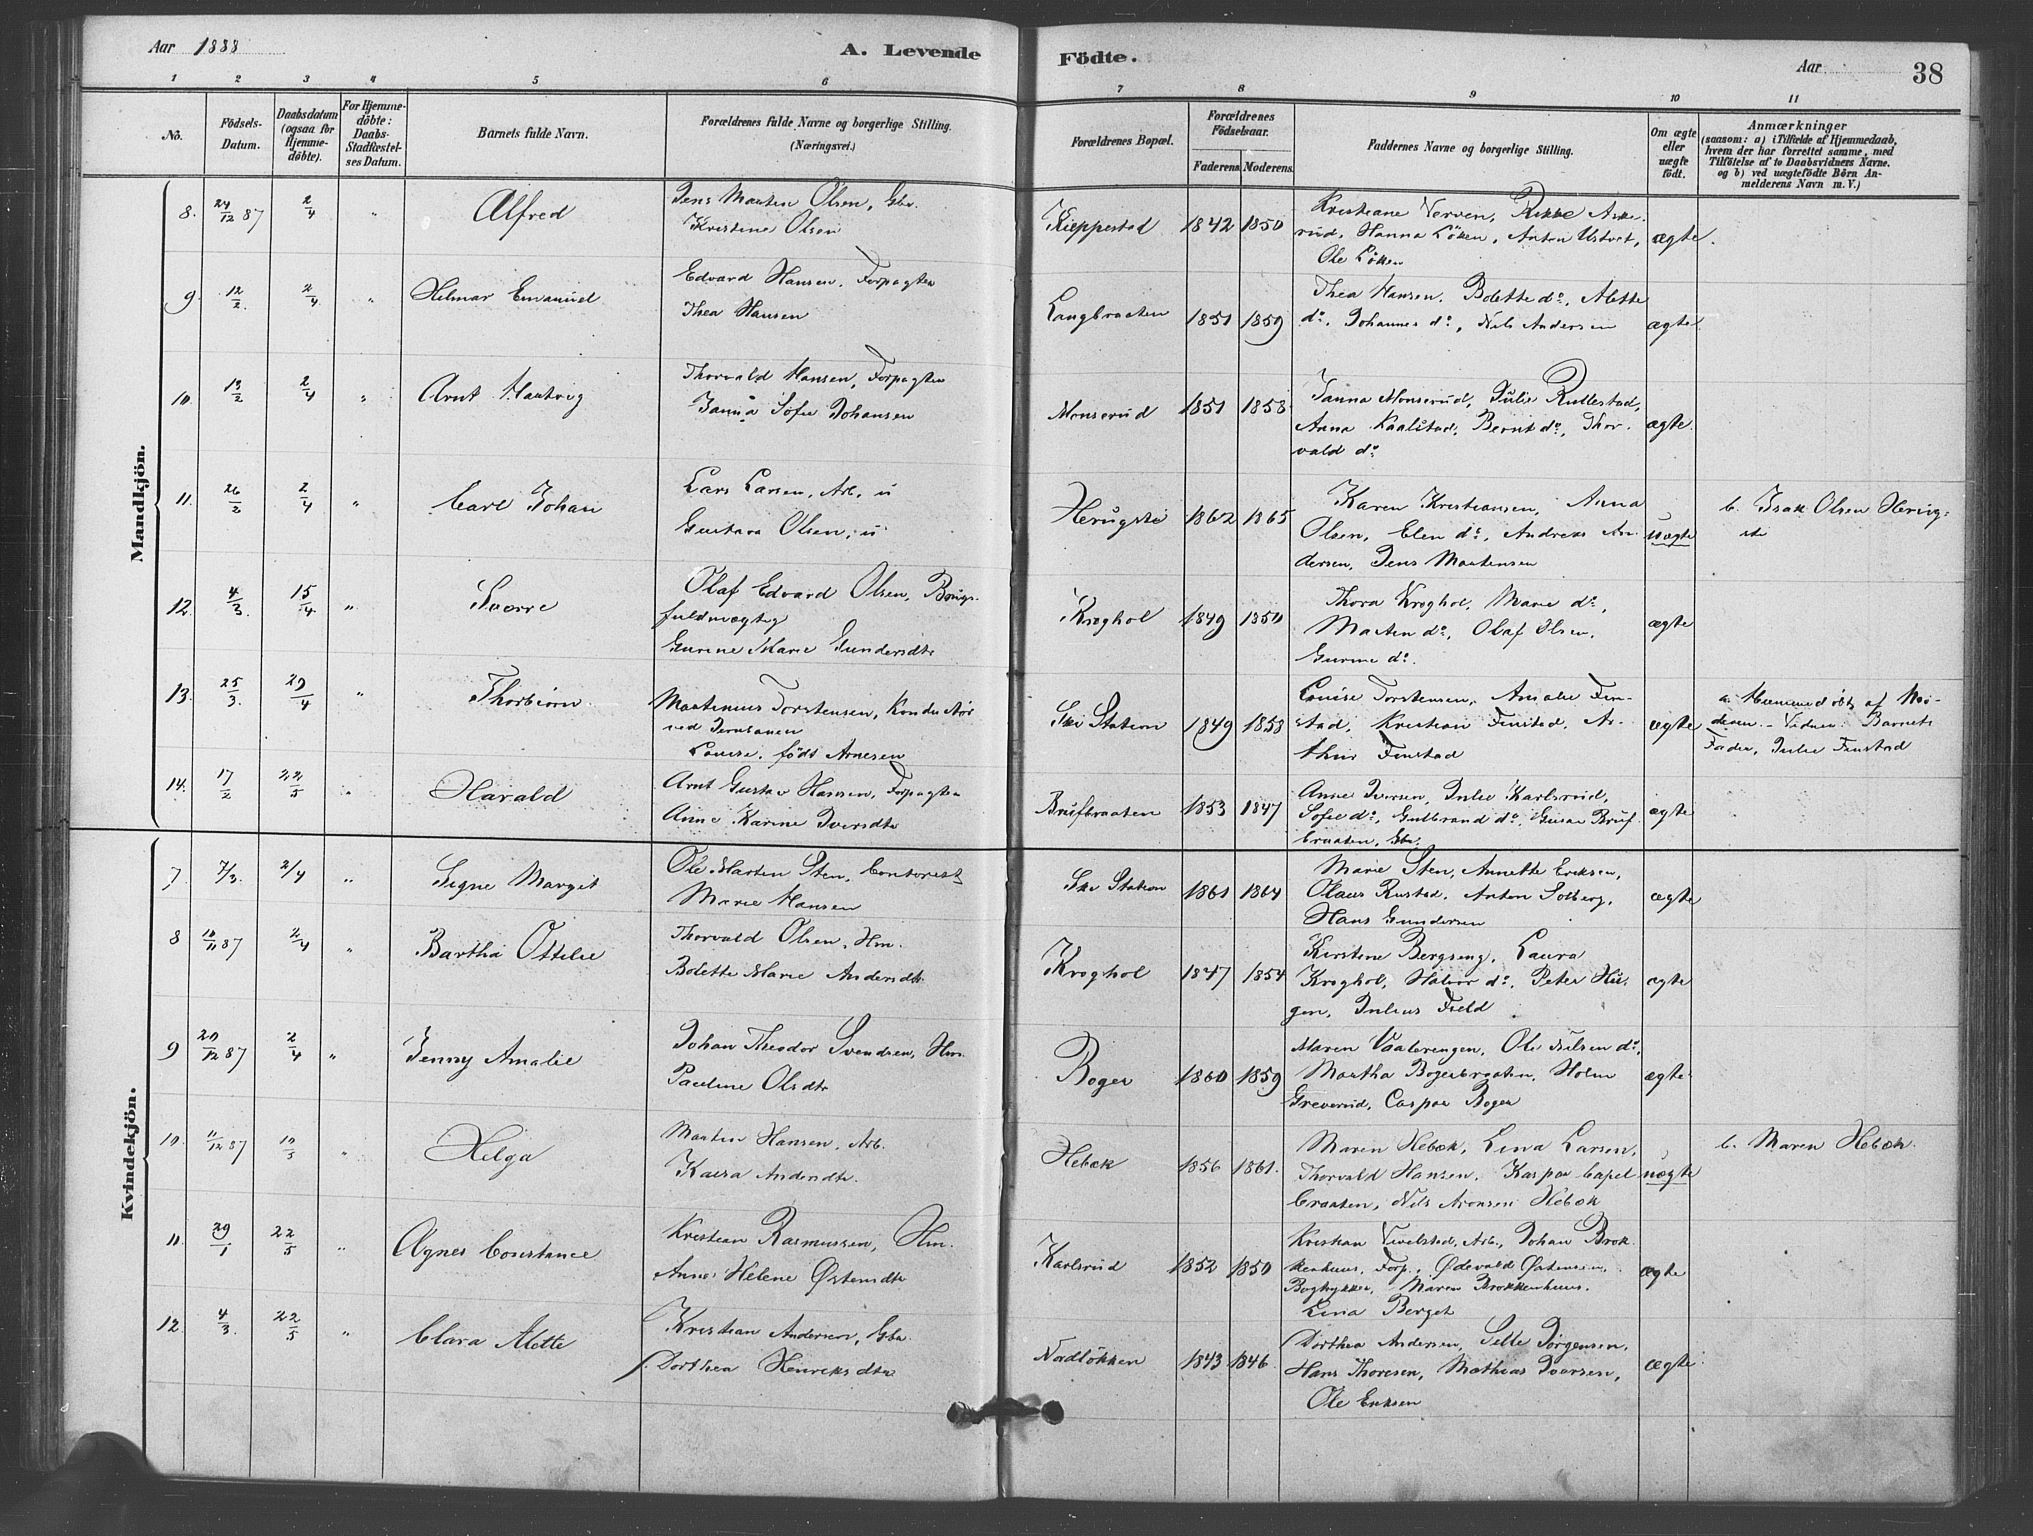 Aar 1888
A. Levende
Födte.
Aar
38
1 2 3 4 5 6 7 8 9 10 11
No.
Födsels-
Datum.
Daabsdatum
(ogsaa for
Hjemme-
döbte).
For Hjemme-
döbte:
Daabs-
Stadfæstel-
ses Datum.
Barnets fulde Navn.
Forældrenes fulde Navne og borgerlige Stilling.
(Næringsvei.)
Forældrenes Bopæl.
Forældrenes
Födselsaar.
Faderens. Moderens.
Faddernes Navne og borgerlige Stilling.
Om ægte
eller
uægte
födt.
Anmærkninger
(saasom: a) i Tilfælde af Hjemmedaab,
hvem der har forrettet samme, med
Tilföielse af to Daabsvidners Navne.
og b) ved uægtefödte Börn An-
melderens Navn m. V.)
Mandkjön.
8. 24/12 87 2/4 " Alfred
Jens Martin Olsen, Gbr.
Kristine Olsen
Kieppestad 1842 1850
Kristiane Verven, Rikke Aske-
rud, Hanna Löken, Anton Ustvet,
Ole Löken
ægte.
9. 12/2. 2/4 " Hilmar Emanuel
Edvard Hansen, Forpagter
Thea Hansen
Langbraaten 1851 1859
Thea Hansen, Bolette do, Alette
do, Johannes do, Nils Andersen
ægte
10. 13/2 2/4 " Arnt Hartvig
Thorvald Hansen, Forpagter
Janna Sofie Johansen
Monserud 1851 1858
Janna Monserud, Julie Rullestad,
Anna Kaalstad, Bernt do, Thor-
vald do
ægte.
11. 26/2 2/4 " Carl Johan
Lars Larsen, Arb. u
Gustava Olsen, u
1862 1865
Karen Kristiansen, Anna
Olsen, Elen do, Andreas An-
dersen, Jens Martensen
uægte
b. Isak Olsen
12. 4/3. 15/4 " Sverre
Olaf Edvard Olsen, Brugs-
fuldmægtig
Gurine Marie Gundersdtr
Kroghol 1849 1850
Thora Kroghol, Marie do,
Marten do, Olaf Olsen,
Gurine do.
ægte
13. 25/3. 29/4 " Thorbiörn
Martinius Torstensen, Konduktör
ved Jernbanen
Louise, födt Arnesen
Ski Station 1849 1858
Louise Torstensen, Amalie Fin-
stad, Kristian Finstad, Ar-
thur Finstad
ægte
a. Hiemmedöbt af Mo-
deren. - Vidner: Barnets
Fader, Julie Finstad
14. 17/2 22/5 " Harald
Arnt Gustav Hansen, Forpagter
Anne Karine Iversdtr
Brufbraaten 1853 1847
Anne Iversen, Julie Karlsrud,
Sofie do, Gulbrand do, Gusav Bruf-
braaten, Gbr.
ægte
Kvindekjön.
7 7/3. 2/4 " Signe Margit
Ole Martin Sten, Contorist
Marie Hansen
Ski Station 1861 1864
Marie Sten, Annette Eriksen,
Olaus Rustad, Anton Solberg,
Hans Gundersen
ægte
8 10/11 87 2/4 " Bartha Ottilie
Thorvald Olsen, Hm.
Bolette Marie Andersdtr
Kroghol 1847 1854
Kirstine Bergseng, Laura
Kroghol, Halvor do, Peter Hu-
gen, Julius Field
ægte
9 20/12 87 2/4 " Jenny Amalie
Johan Theodor Svendsen, Hm.
Pauline Olsdtr
Boger 1860 1859
Maren Vaalerengen, Ole Nilsen do,
Martha Bogerbraaten, Holm
Greverud, Caspar Boger
ægte
10. 11/12 87 10/5 " Helga
Martin Hansen, Arb.
Kaisa Andersdtr.
Hebæk 1856 1861.
Maren Hebæk, Lina Larsen,
Thorvald Hansen, Kaspar Capel-
braaten, Nils Aronsen Hebæk
uægte
b. Maren Hebæk.
11. 29/1 22/5 " Agnes Constance
Kristian Rasmussen, Hm.
Anne Helene Östensdtr
Karlsrud 1852 1850
Kristian Vevelstad, Arb., Johan Brok-
kenhuus, Forp., Ödevald Östensen,
Bogtrykker, Maren Brokkenhuus.
Lina Berget
ægte
12. 4/3. 22/5 " Clara Alette
Kristian Andersen, Gbr.
Dorthea Henriksdtr
Nordlökken 1843 1846
Dorthea Andersen, Sille Jörgensen,
Hans Thoresen, Mathias Iversen,
Ole Eriksen
ægte